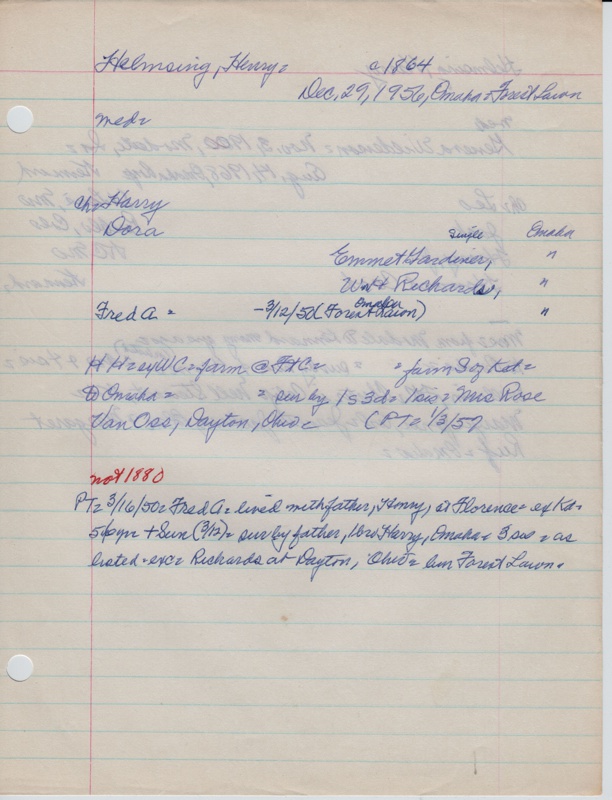 Helmsing, Henry= c1864
Dec, 29, 1956, Omaha = Forest Lawn
med=
ch= Harry
Dora single Omaha
Emmet Gardiner, "
Wm Richards, "
Fred A = -3/12/50 (Forest Lawn) Omaha "
H H= ey WC= farm @ Ft C= = farm Soz Kat=
D Omaha= = sur by 1s 3d= 1sis= Mrs Rose
Van Oss, Dayton, Ohio = (PT= 1/3/57
not 1880
PT= 3/16/50= Fred A= lived with father, Henry, at Florence= ex Kd=
56yr + Sun (3/12)= sur by father, bro Harry, Omaha= 3 sis = as
listed= exc= Richards at Dayton, Ohio= bur Forest Lawn=